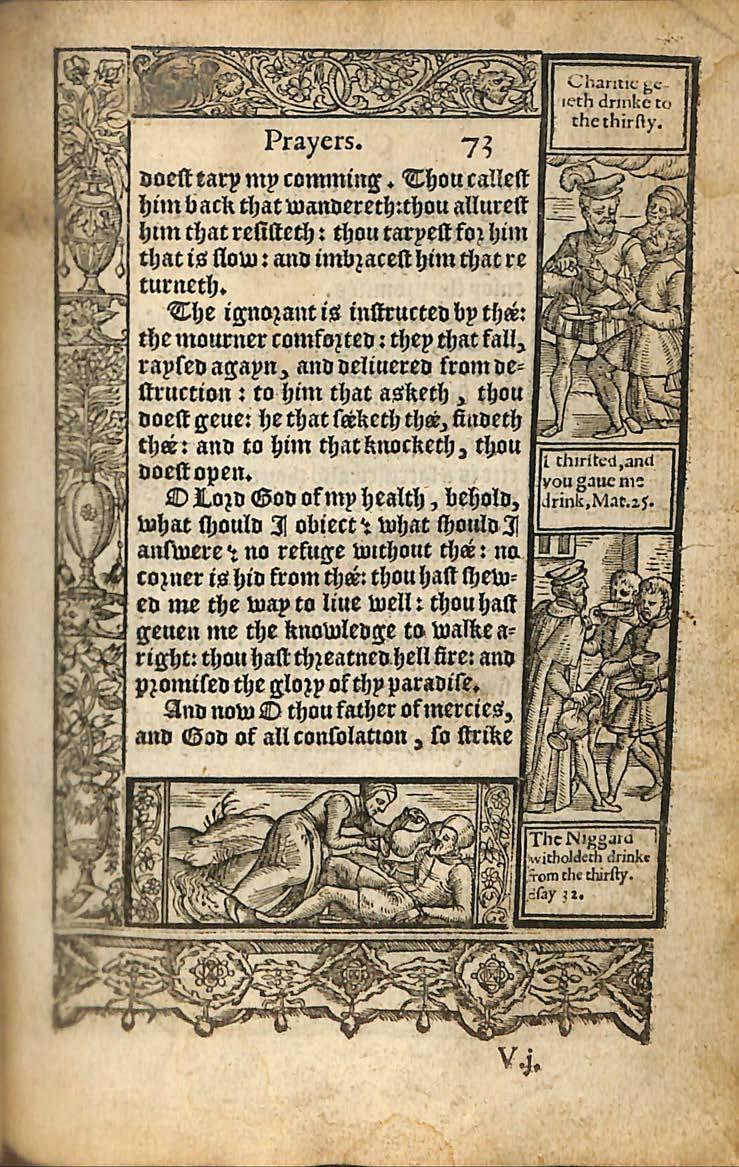 Prayers. 73
doest tary my comming. Thou callest
him back that wandereth: thou allurest
him that resisteth: thou taryest for him
that is slow: and imbracest him that re
turneth.
The ignorant is instructed by thée:
the mourner comforted: they that fall,
raysed agayn, and deliuered from de=
struction: to him that asketh, thou
doest geue: he that séeketh thée, findeth
thée: and to him that knocketh, thou
doest open.
O Lord God of my health, behold,
what should I obiect? what should I
answere? no refuge without thée: no
corner is hid from thée: thou hast shew=
ed me the way to liue well: thou hast
geuen me the knowledge to walke a=
right: thou hast threatned hell fire: and
promised the glory of thy paradise.
And now O thou father of mercies,
and God of all consolation, so strike
Charitie ge-
ueth drinke to
the thirsty.
I thirsted, and
you gaue me
drink, Mat. 25.
The Niggard
witholdeth drinke
from the thirsty.
Esay 32.
V.j.